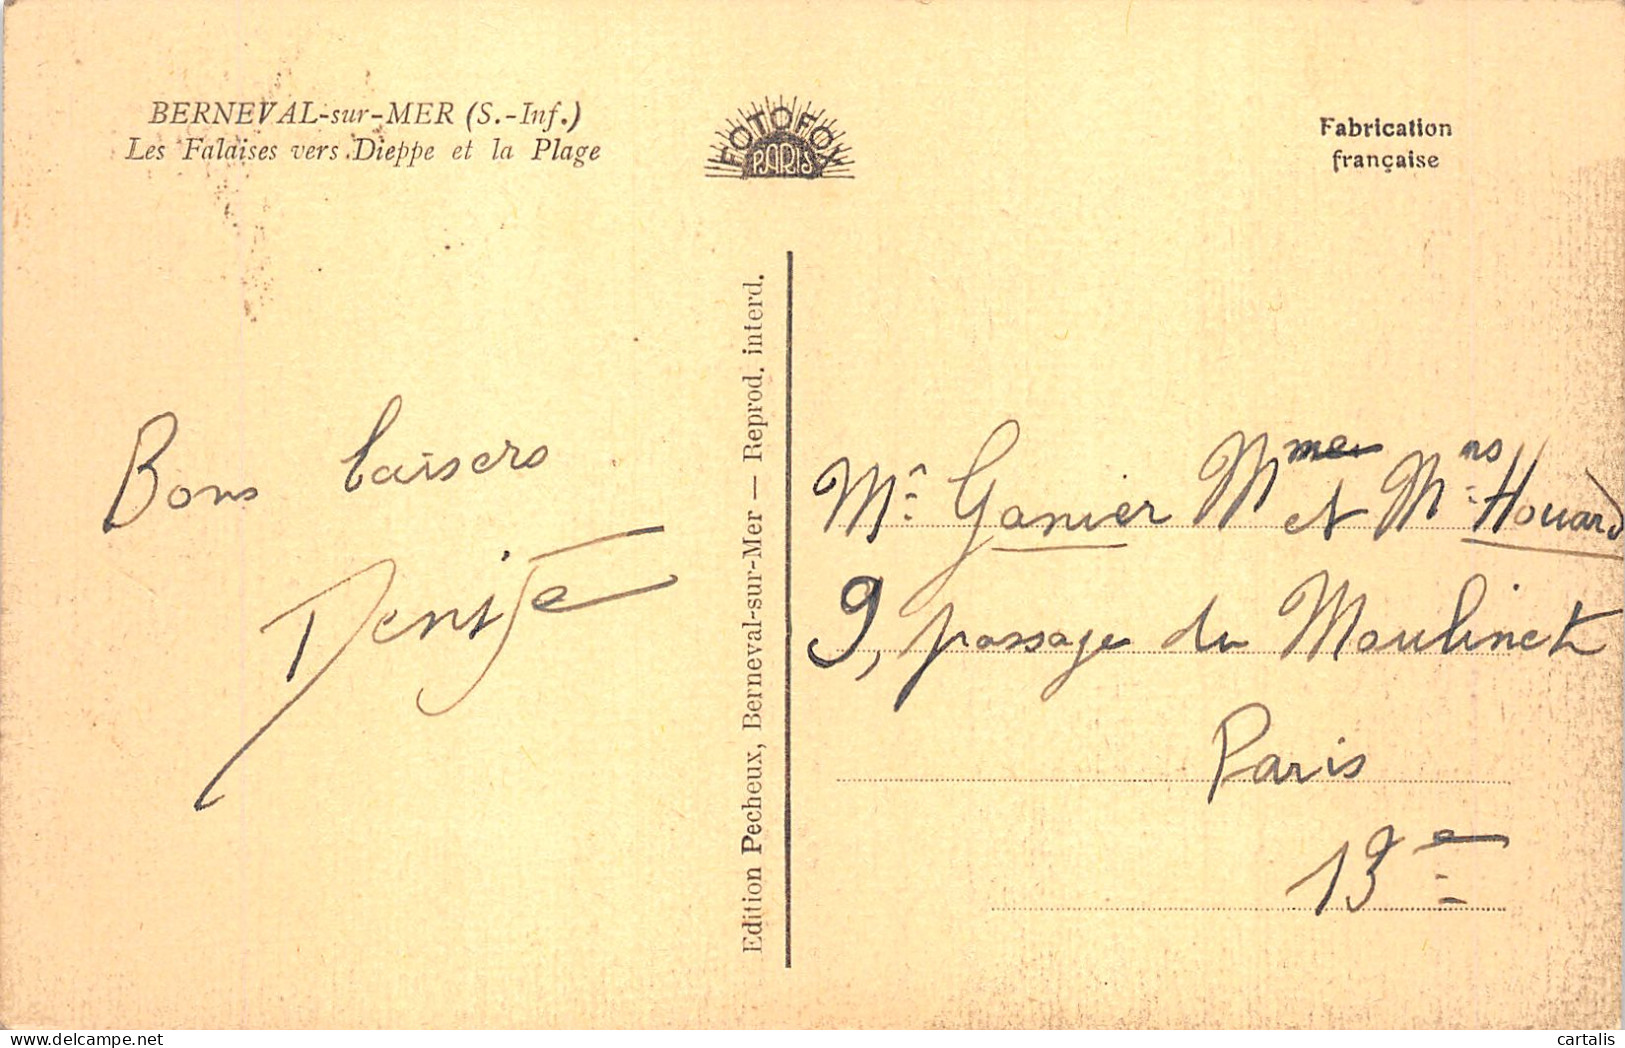 BERNEVAL-sur-MER (S.-Inf.)
Les Falaises vers Dieppe et la Plage
FOTOFOX
PARIS
Fabrication
française
Edition Pecheux, Berneval-sur-Mer — Reprod. interd.
Bons baisers
Denise
Mr Ganier Mme et Mrs Houard
9, passage du Moulinet
Paris
13e
delcampe.net
cartalis